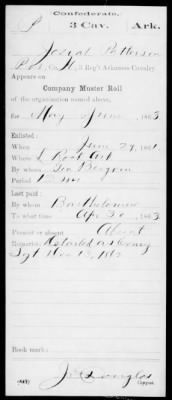 Confederate.
P 3 Cav. Ark.
Josiah Patterson
Co. H, 3 Reg't Arkansas Cavalry
Appears on
Company Muster Roll
of the organization named above,
for May & June, 1863
Enlisted:
When June 29, 1861
Where L Rock Ark
By whom
Period 12 mo
Last paid:
By whom Bartholomew
To what time Apr 30, 1863
Present or absent Absent
Remarks: Detailed as
Sgt 186
Book mark:
(642) Copyist.